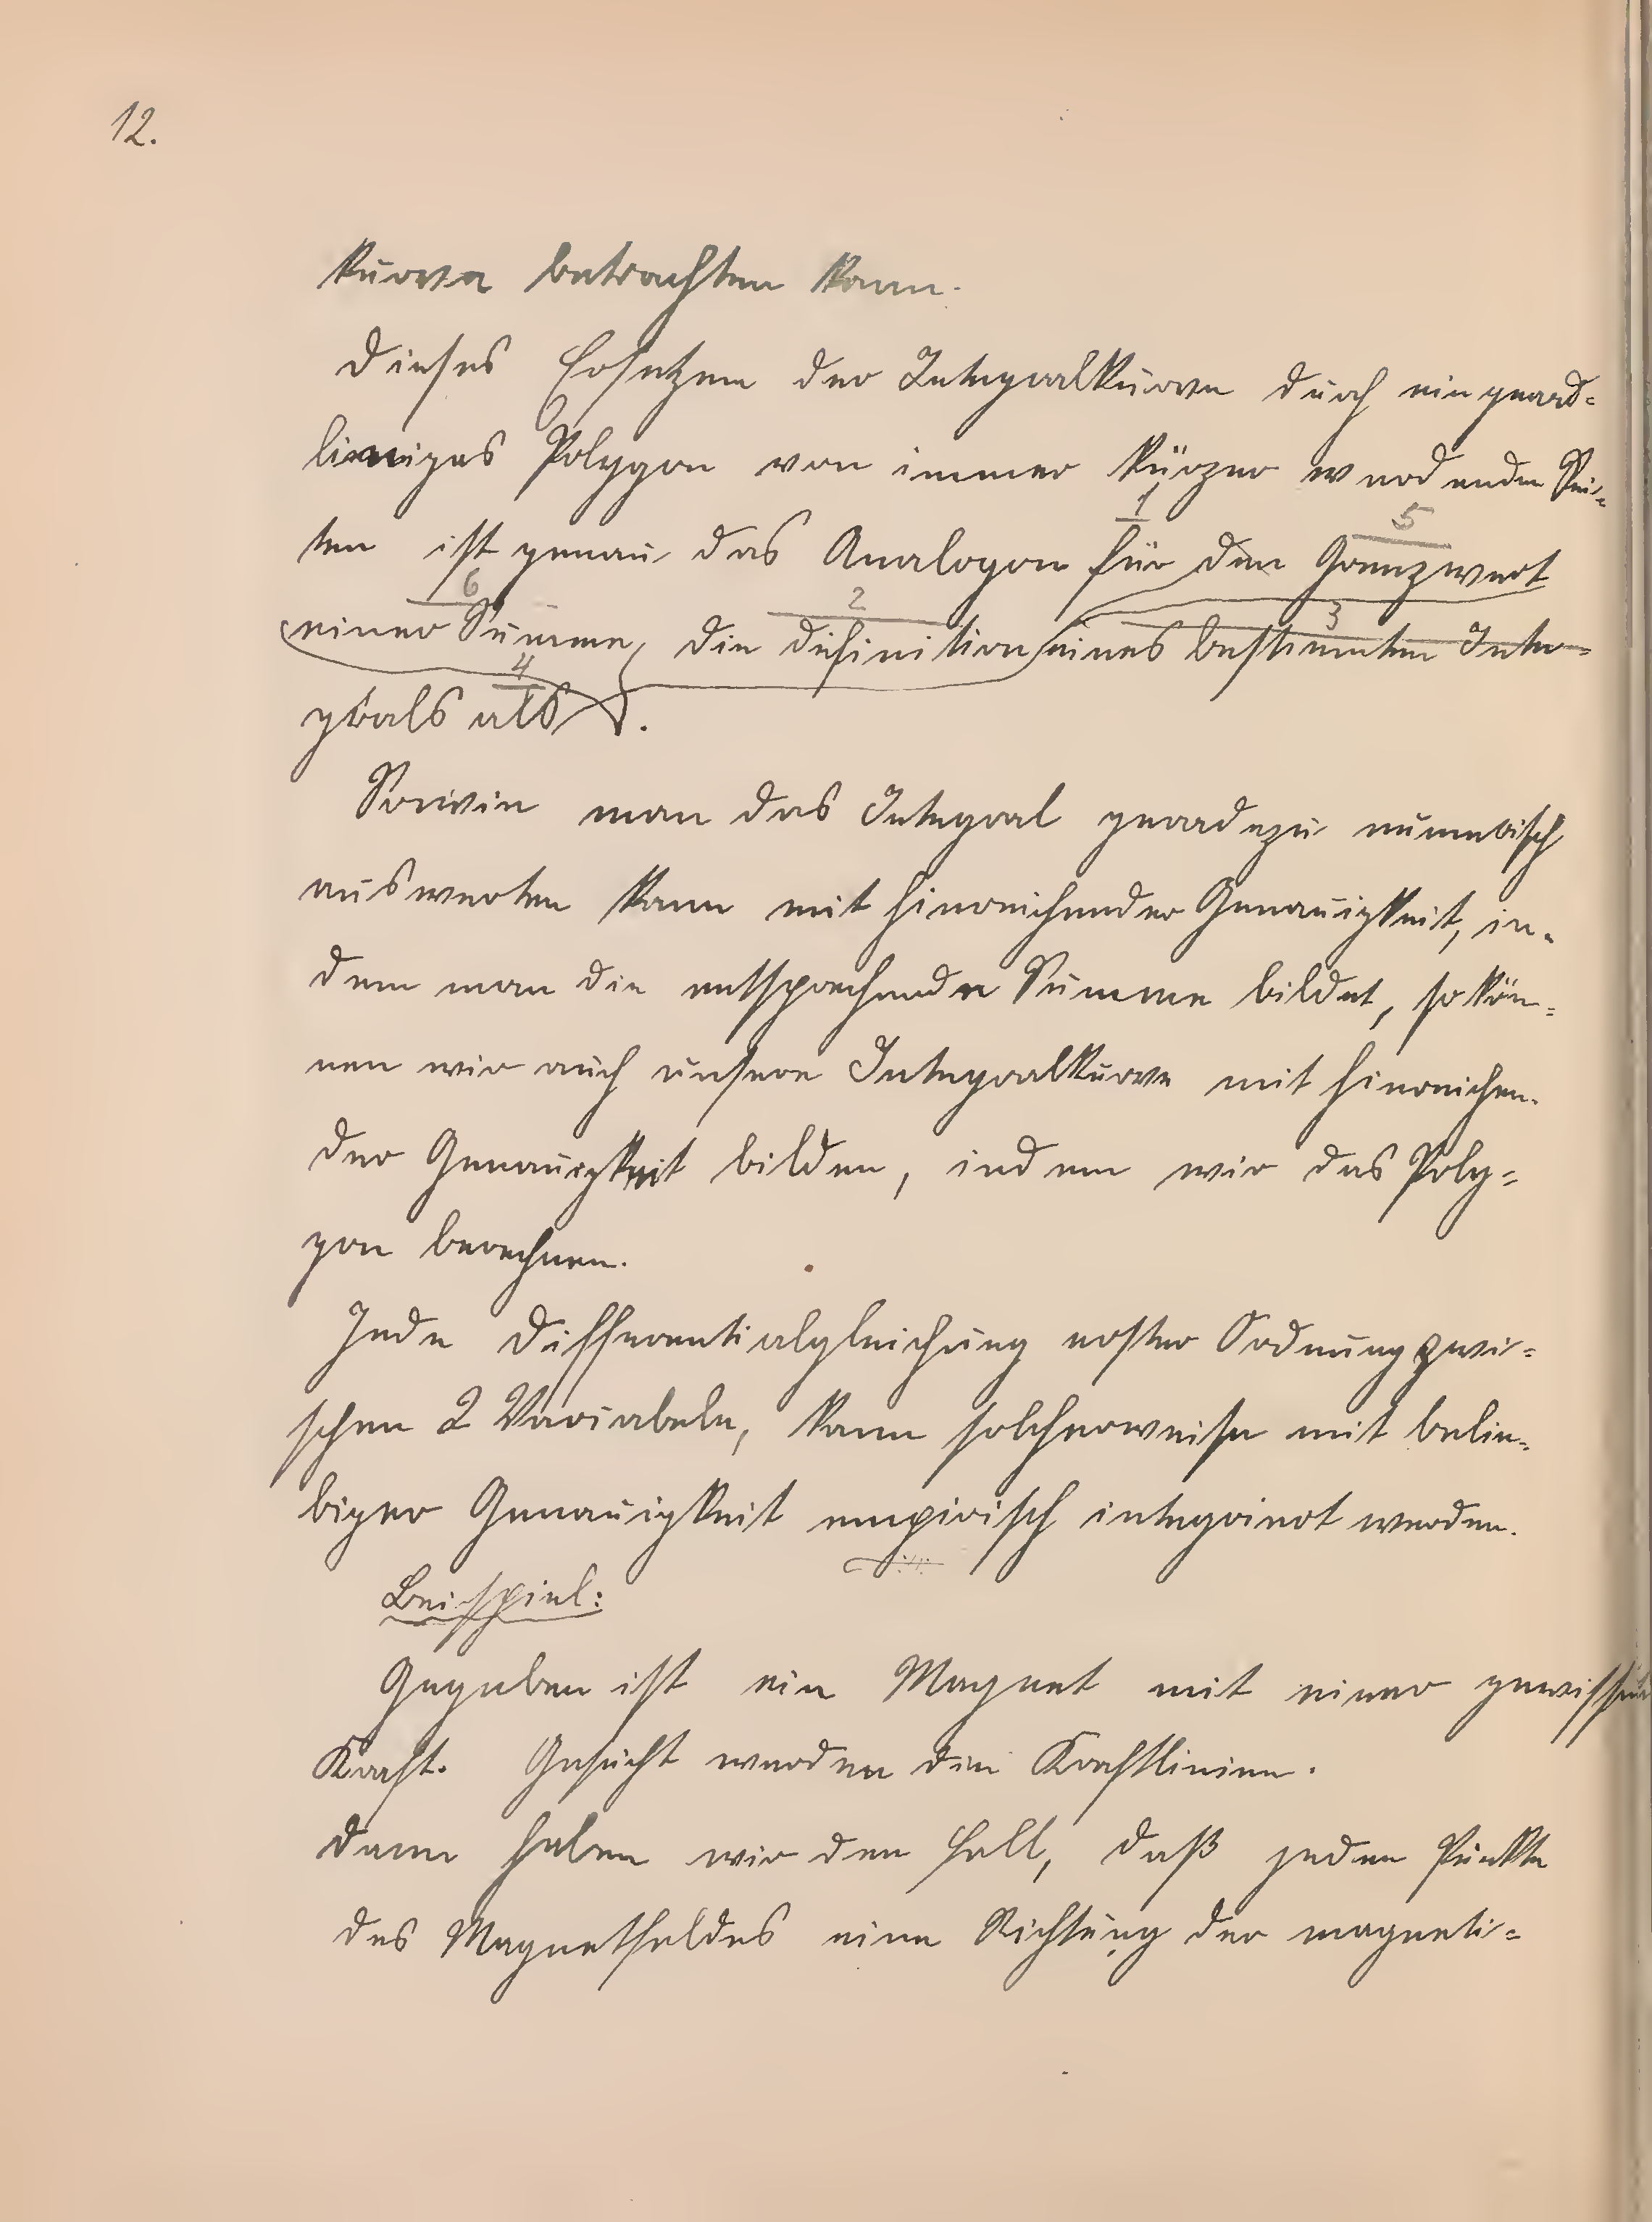 12.
Kurve betrachten kann.
Dieses Ersetzen der Integralkurve durch ein gerad-
liniges Polygon von immer kürzer werdenden Sei-
ten ist genau das Analogon für den Grenzwert
einer Summe, die Definition eines bestimmten Inte-
grals als.
1
5
6
2
3
4
Sowie man das Integral geradezu numerisch
auswerten kann mit hinreichender Genauigkeit, in-
dem man die entsprechende Summe bildet, so kön-
nen wir auch unsere Integralkurve mit hinreichen-
der Genauigkeit bilden, indem wir das Poly-
gon berechnen.
Jede Differentialgleichung erster Ordnung zwi-
schen 2 Variabeln, kann solcherweise mit belie-
biger Genauigkeit empirisch integriert werden.
Beispiel:
Gegeben ist ein Magnet mit einer gewissen
Kraft. Gesucht werden die Kraftlinien.
Dann haben wir den Fall, daß jedem Punkte
des Magnetfeldes eine Richtung der magneti-